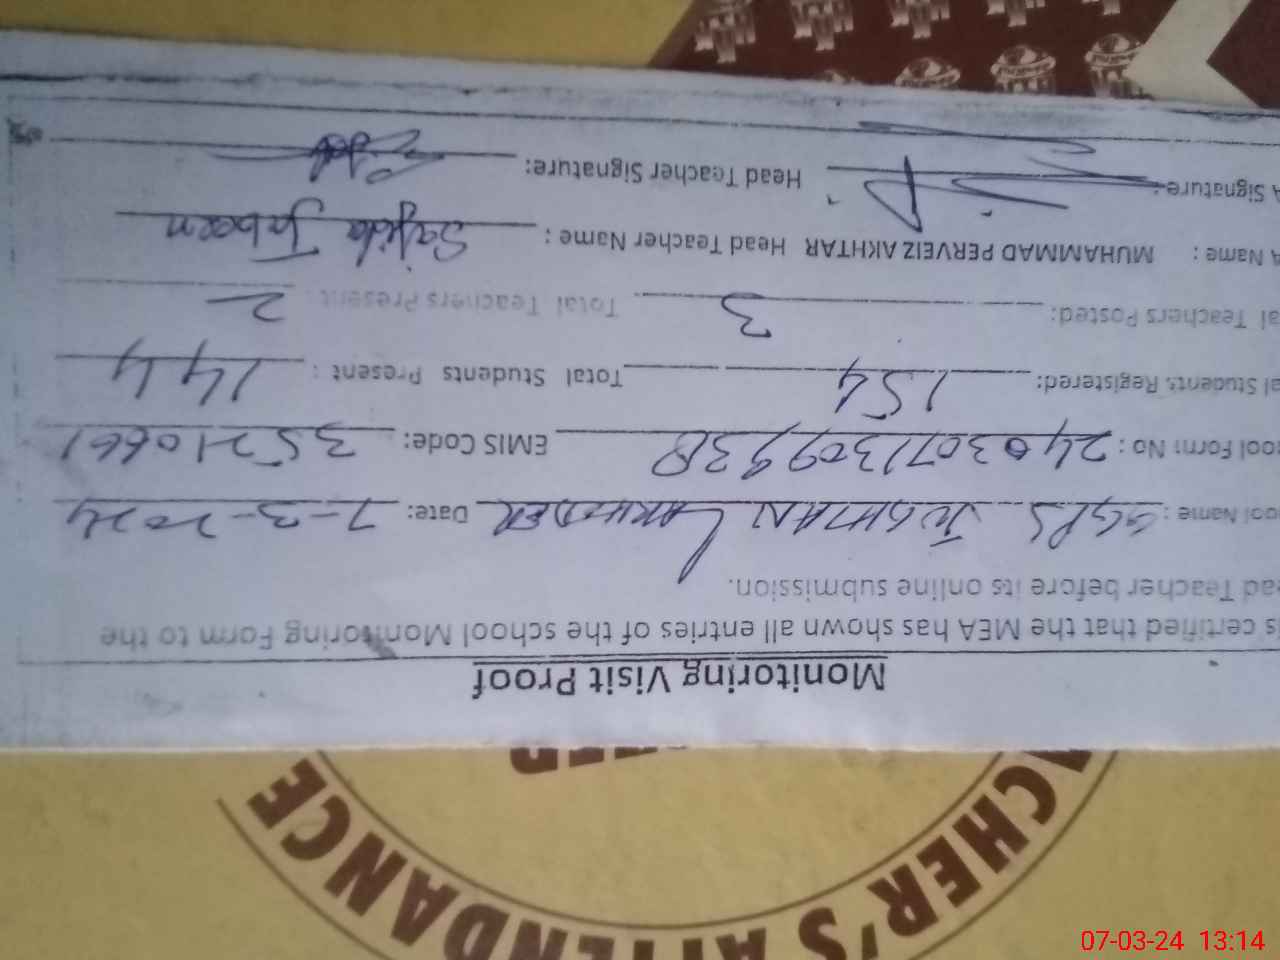 Monitoring Visit Proof
is certified that the MEA has shown all entries of the school Monitoring Form to the
ead Teacher before its online submission.
ool Name : GGPS JUGHIAN LAKHODER Date: 7-3-2024
ool Form No : 24030713093 EMIS Code: 35210661
al Students Registered: 154 Total Students Present : 144
al Teachers Posted: 3 Total Teachers Present : 2
A Name : MUHAMMAD PERVEIZ AKHTAR Head Teacher Name : Sajida Jabeen
A Signature : Head Teacher Signature:
TEACHER'S ATTENDANCE
07-03-24 13:14